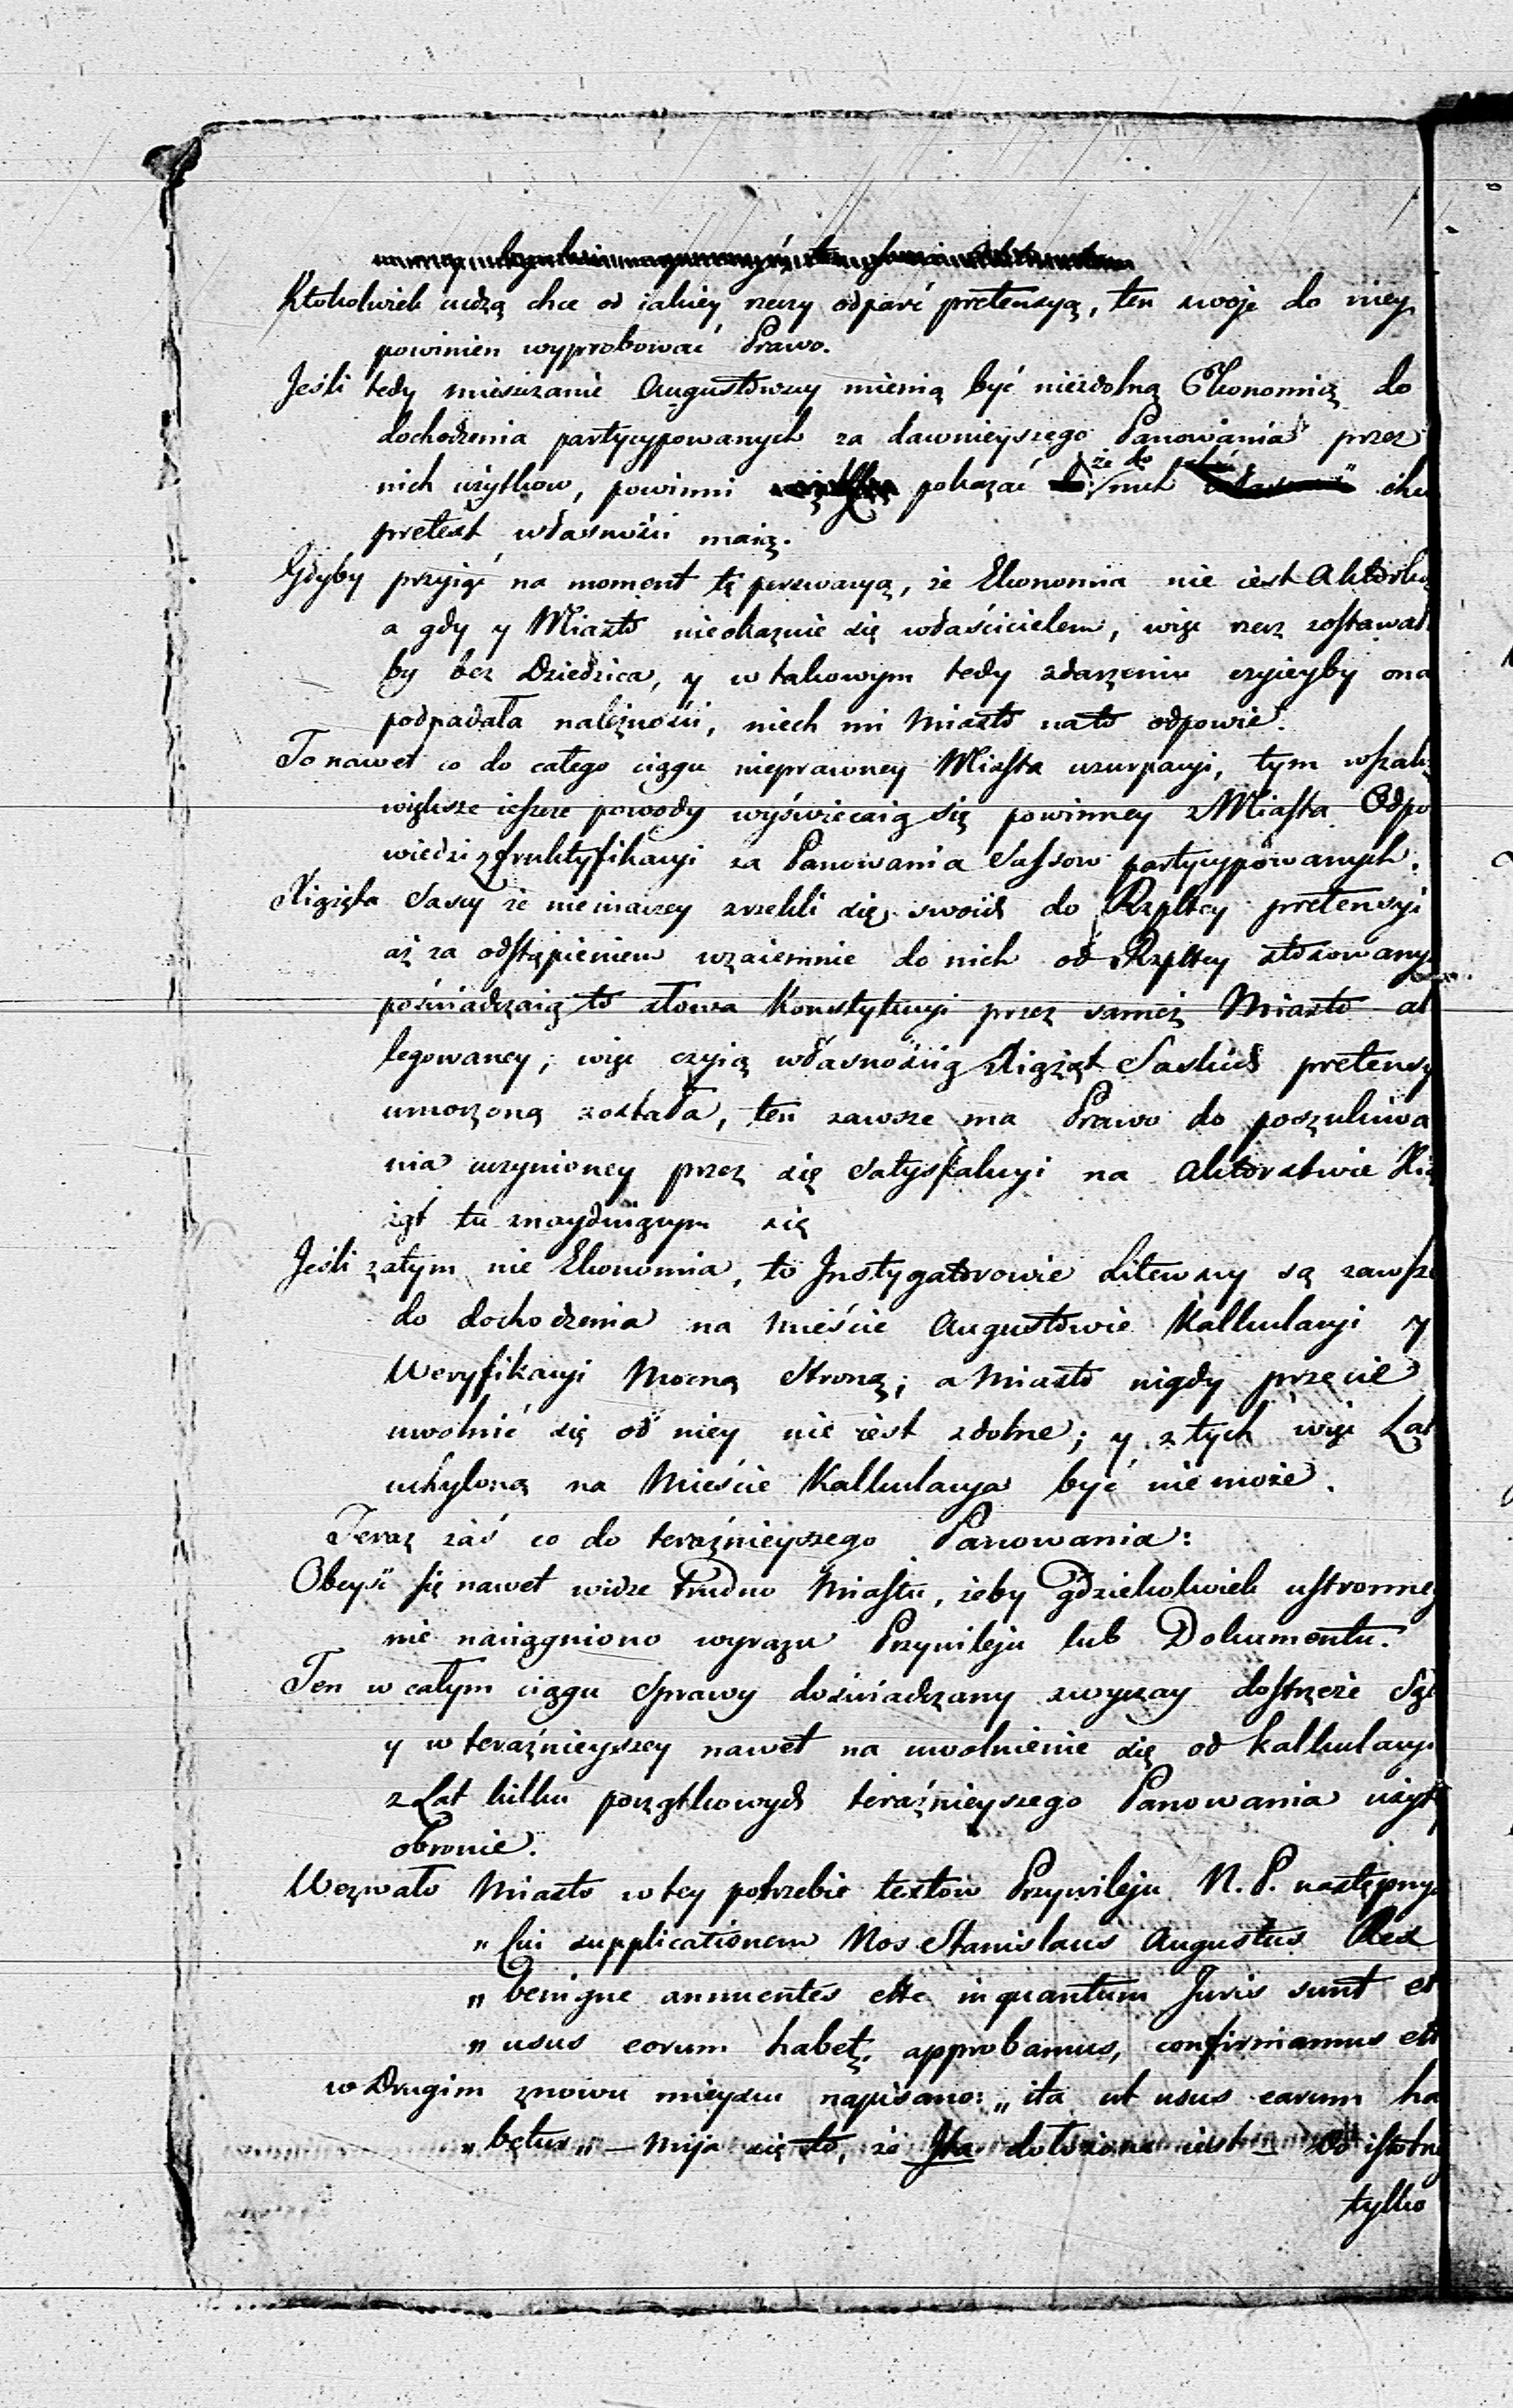 Ktokolwiek cudzą chce od iakiey rzeczy odparć pretensyą, ten swoje do niey
powinien wyprobować Prawo.
Jeśli tedy mieszczanie Augustowscy mienią być niezdolną Ekonomią do
dochodzenia partycypowanych za dawnieyszego Panowania przez
nich użytkow, powinni pokazać że do nich
pretext własności maią.
Gdyby przyjąć na moment tę perswazyą, że Ekonomia nie iest Aktorką
a gdy y Miasto nieokazuie się właścicielem, więc rzecz zostawał
by bez Dziedzica, y w takowym tedy zdarzeniu czyieyby ona
podpadała należności, niech mi Miasto na to odpowie.
To nawet co do całego ciągu nieprawney Miasta uzurpacyi, tym wszak
większe ieszcze powody wyświecaią się powinney z Miasta Odpo
wiedzi z fruktyfikacyi za Panowania Sassow partycypowanych.
Xiążęta Sascy że nieinaczey zrzekli się swoich do Rzpltey pretensyi
aż za odstąpieniem wzaiemnie do nich od Rzpltey stosowany
poświadczaią to słowa Konstytucyi przez sameż Miasto al
legowaney; więc czyią własnością Xiążąt Saskich pretensy
umorzoną została, ten zawsze ma Prawo do poszukiwa
nia uczynioney przez się Satysfakcyi na Aktorstwie Xią
żąt tu znayduiącym się
Jeśli zatym nie Ekonomia, to Instygatorowie Litewscy są zawsze
do dochodzenia na Mieście Augustowie Kalkulacyi y
Weryfikacyi Mocną Stroną; a Miasto nigdy przecie
uwolnić się od niey nie iest zdolne; y z tych więc Lat
uchyloną na Mieście Kalkulacya być nie może.
Teraz zaś co do teraźnieyszego Panowania:
Obeyść się nawet widzę trudno Miastu, żeby gdziekolwiek ustronnego
nie naciągniono wyrazu Przywileju lub Dokumentu.
Ten w całym ciągu Sprawy doświadczany zwyczay dostrzeże Są
y w teraźnieyszey nawet na uwolnienie się od Kalkulacyi
z Lat kilku początkowych teraźnieyszego Panowania użyt
obronie.
Wezwało Miasto w tey potrzebie textow Przywileju N. P. następny
„ Cui supplicationem Nos Stanislaus Augustus Rex
„ benigne annuentes ette in quantum Juris sunt et
„ usus eorum habet, approbamus, confirmamus ett
w Drugim znowu mieyscu napisano: „ ita ut usus earum ha
„ betur „ – mija się to, że Ita dołożone iest – Od istotne
tylko